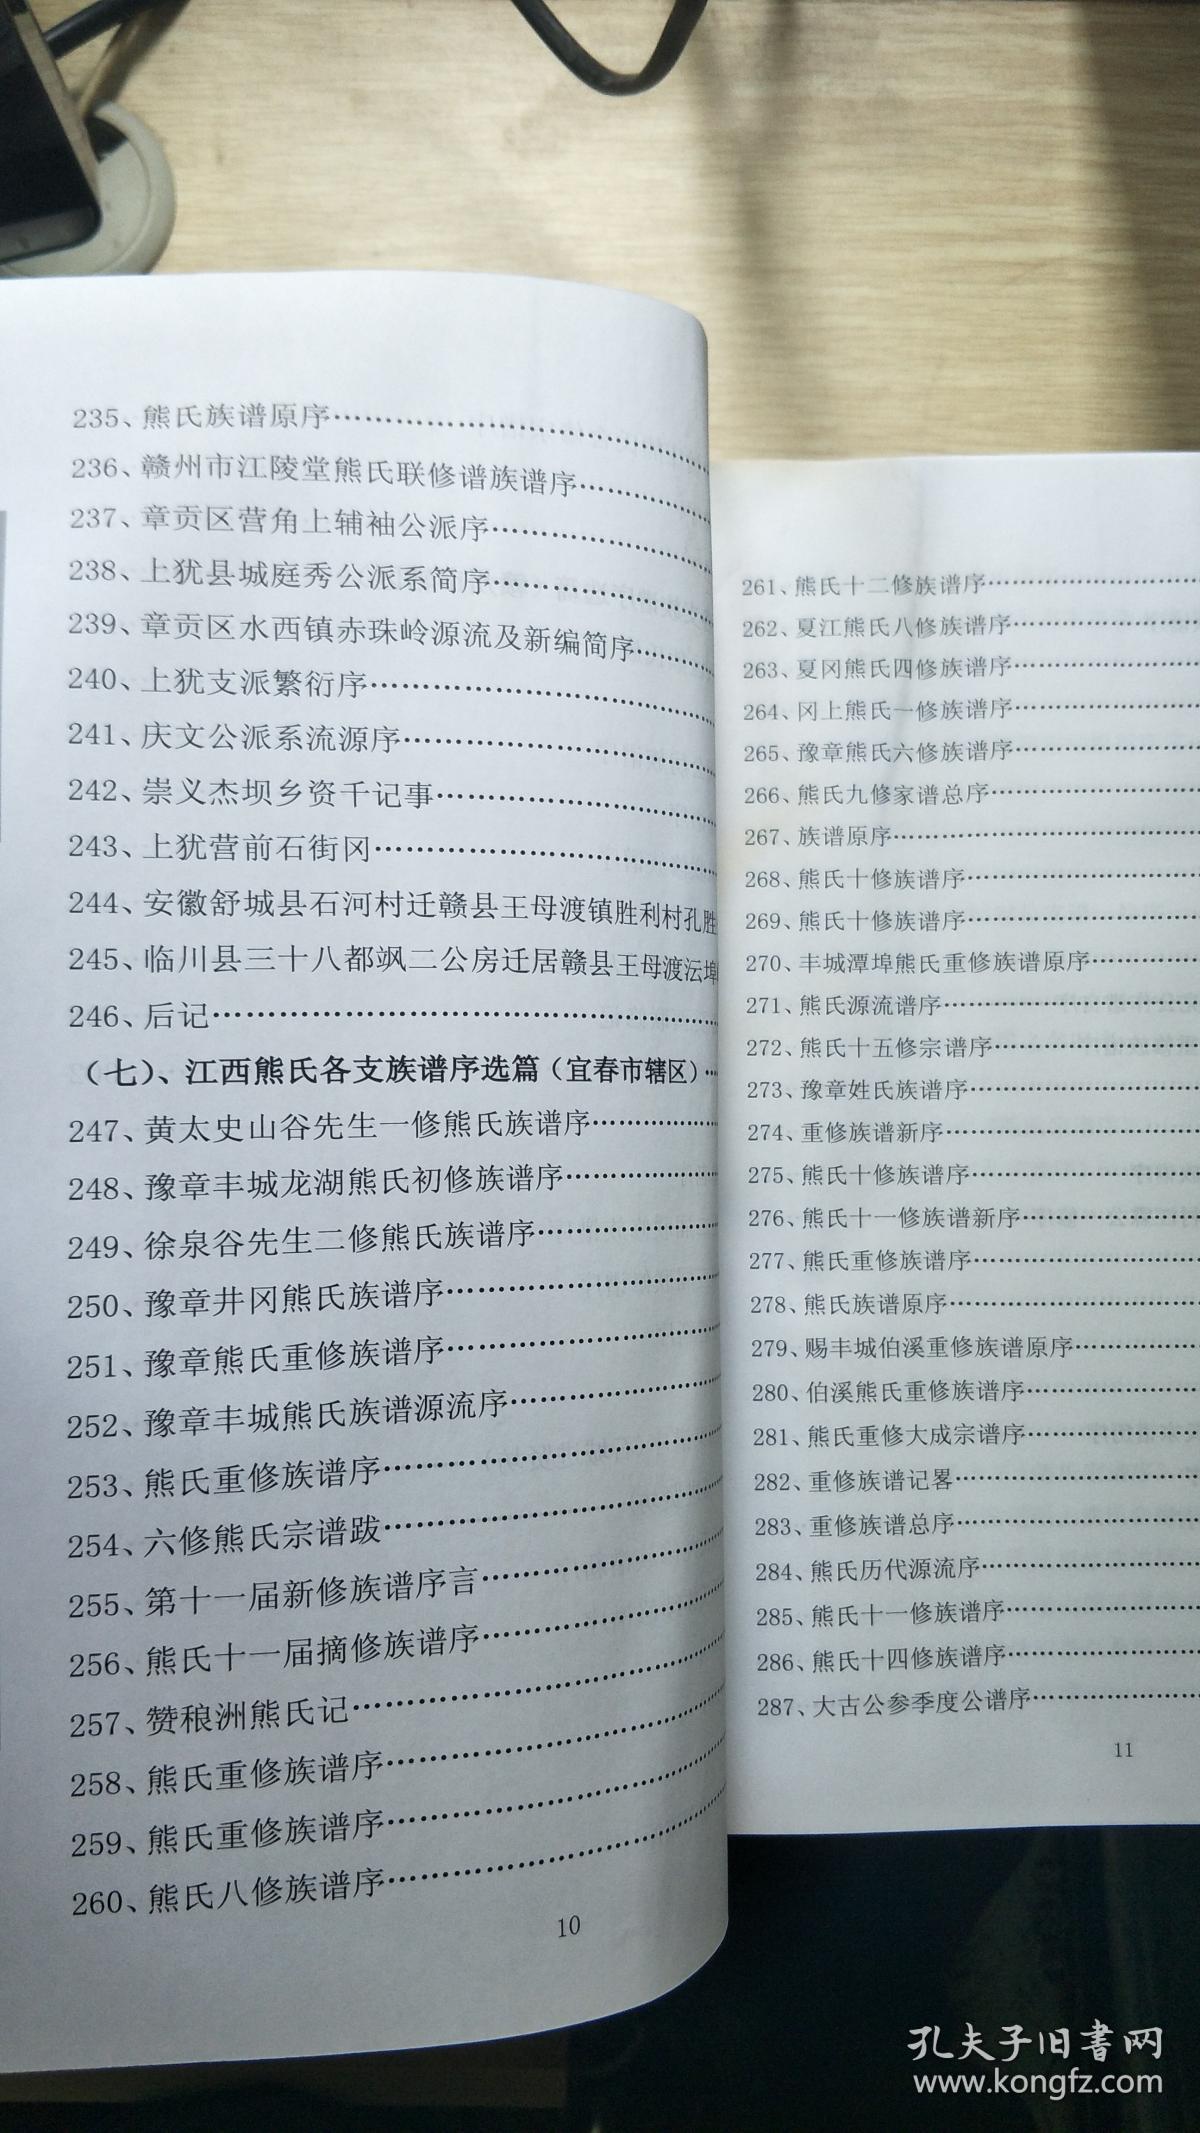 235、熊氏族谱原序……………………
236、赣州市江陵堂熊氏联修谱族谱序…………
237、章贡区营角上辅袖公派序……………
238、上犹县城庭秀公派系简序……………
239、章贡区水西镇赤珠岭源流及新编简序………
240、上犹支派繁衍序……………………
241、庆文公派系流源序…………………
242、崇义杰坝乡资千记事………………
243、上犹营前石街冈……………………
244、安徽舒城县石河村迁赣县王母渡镇胜利村孔胜
245、临川县三十八都飒二公房迁居赣县王母渡沄埠
246、后记………………………………
（七）、江西熊氏各支族谱序选篇（宜春市辖区）…
247、黄太史山谷先生一修熊氏族谱序………
248、豫章丰城龙湖熊氏初修族谱序…………
249、徐泉谷先生二修熊氏族谱序……………
250、豫章井冈熊氏族谱序…………………
251、豫章熊氏重修族谱序…………………
252、豫章丰城熊氏族谱源流序……………
253、熊氏重修族谱序……………………
254、六修熊氏宗谱跋……………………
255、第十一届新修族谱序言………………
256、熊氏十一届摘修族谱序………………
257、赞稂洲熊氏记……………………
258、熊氏重修族谱序……………………
259、熊氏重修族谱序……………………
260、熊氏八修族谱序……………………
10
261、熊氏十二修族谱序………………
262、夏江熊氏八修族谱序……………
263、夏冈熊氏四修族谱序……………
264、冈上熊氏一修族谱序……………
265、豫章熊氏六修族谱序……………
266、熊氏九修家谱总序………………
267、族谱原序………………………
268、熊氏十修族谱序…………………
269、熊氏十修族谱序…………………
270、丰城潭埠熊氏重修族谱原序………
271、熊氏源流谱序……………………
272、熊氏十五修宗谱序………………
273、豫章姓氏族谱序…………………
274、重修族谱新序……………………
275、熊氏十修族谱序…………………
276、熊氏十一修族谱新序……………
277、熊氏重修族谱序…………………
278、熊氏族谱原序……………………
279、赐丰城伯溪重修族谱原序…………
280、伯溪熊氏重修族谱序……………
281、熊氏重修大成宗谱序……………
282、重修族谱记畧……………………
283、重修族谱总序……………………
284、熊氏历代源流序…………………
285、熊氏十一修族谱序………………
286、熊氏十四修族谱序………………
287、大古公参季度公谱序……………
11
孔夫子旧书网
www.kongfz.com